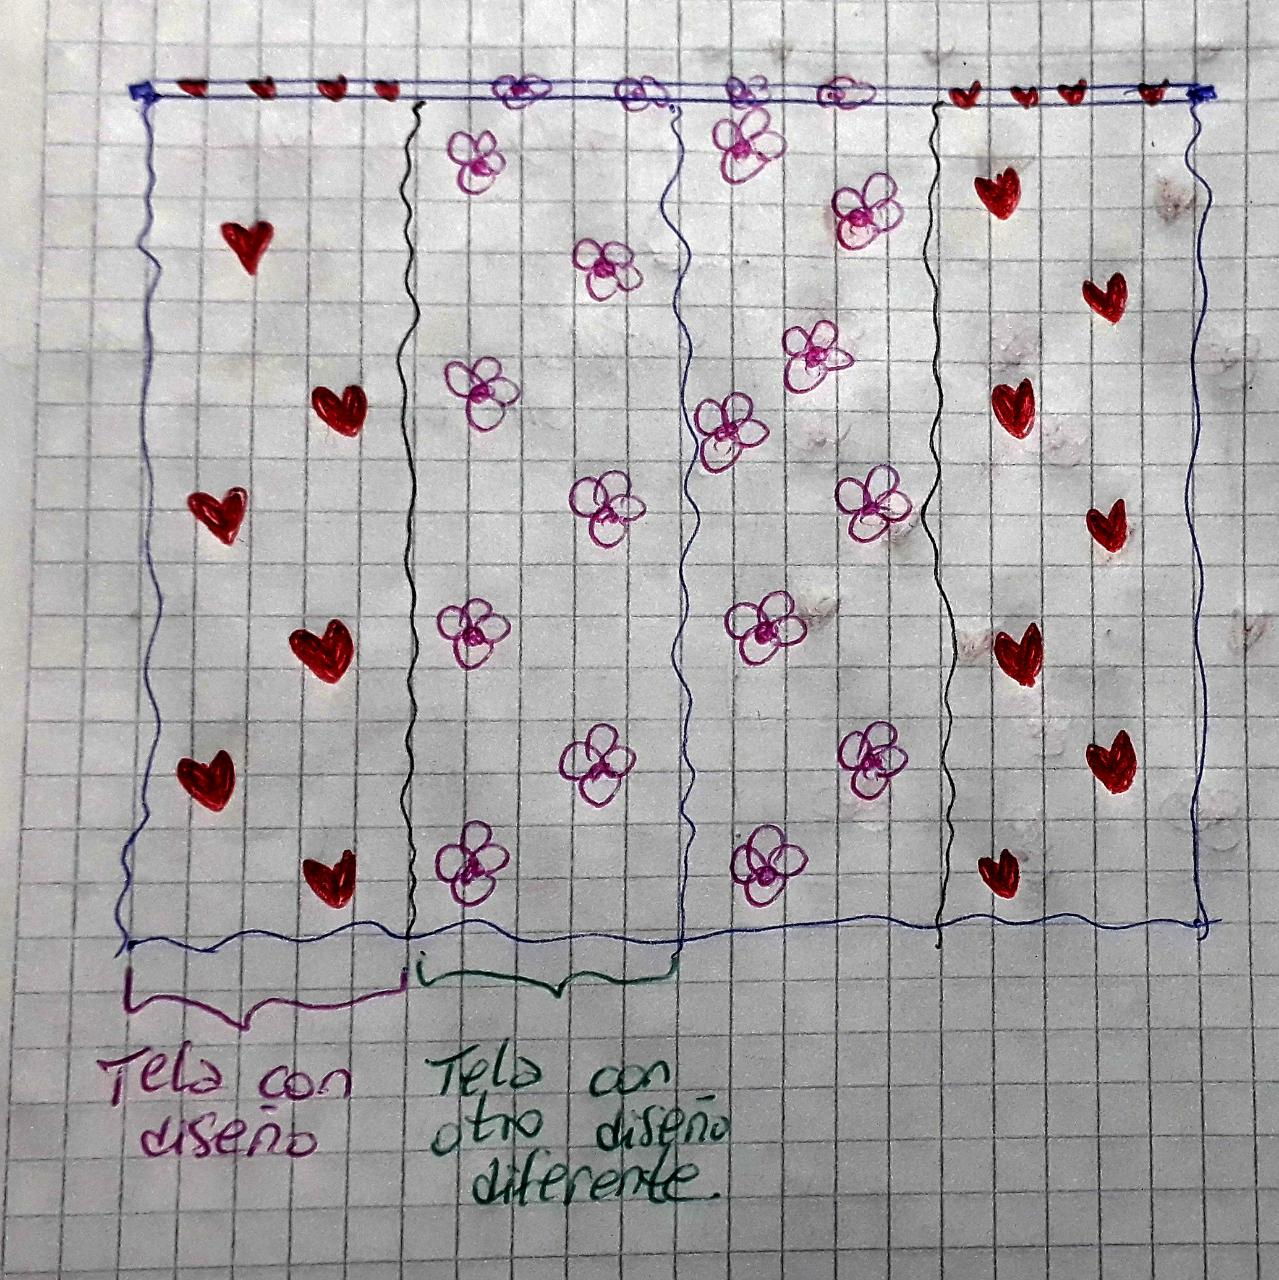 Tela con
diseño
Tela con
otro diseño
diferente.